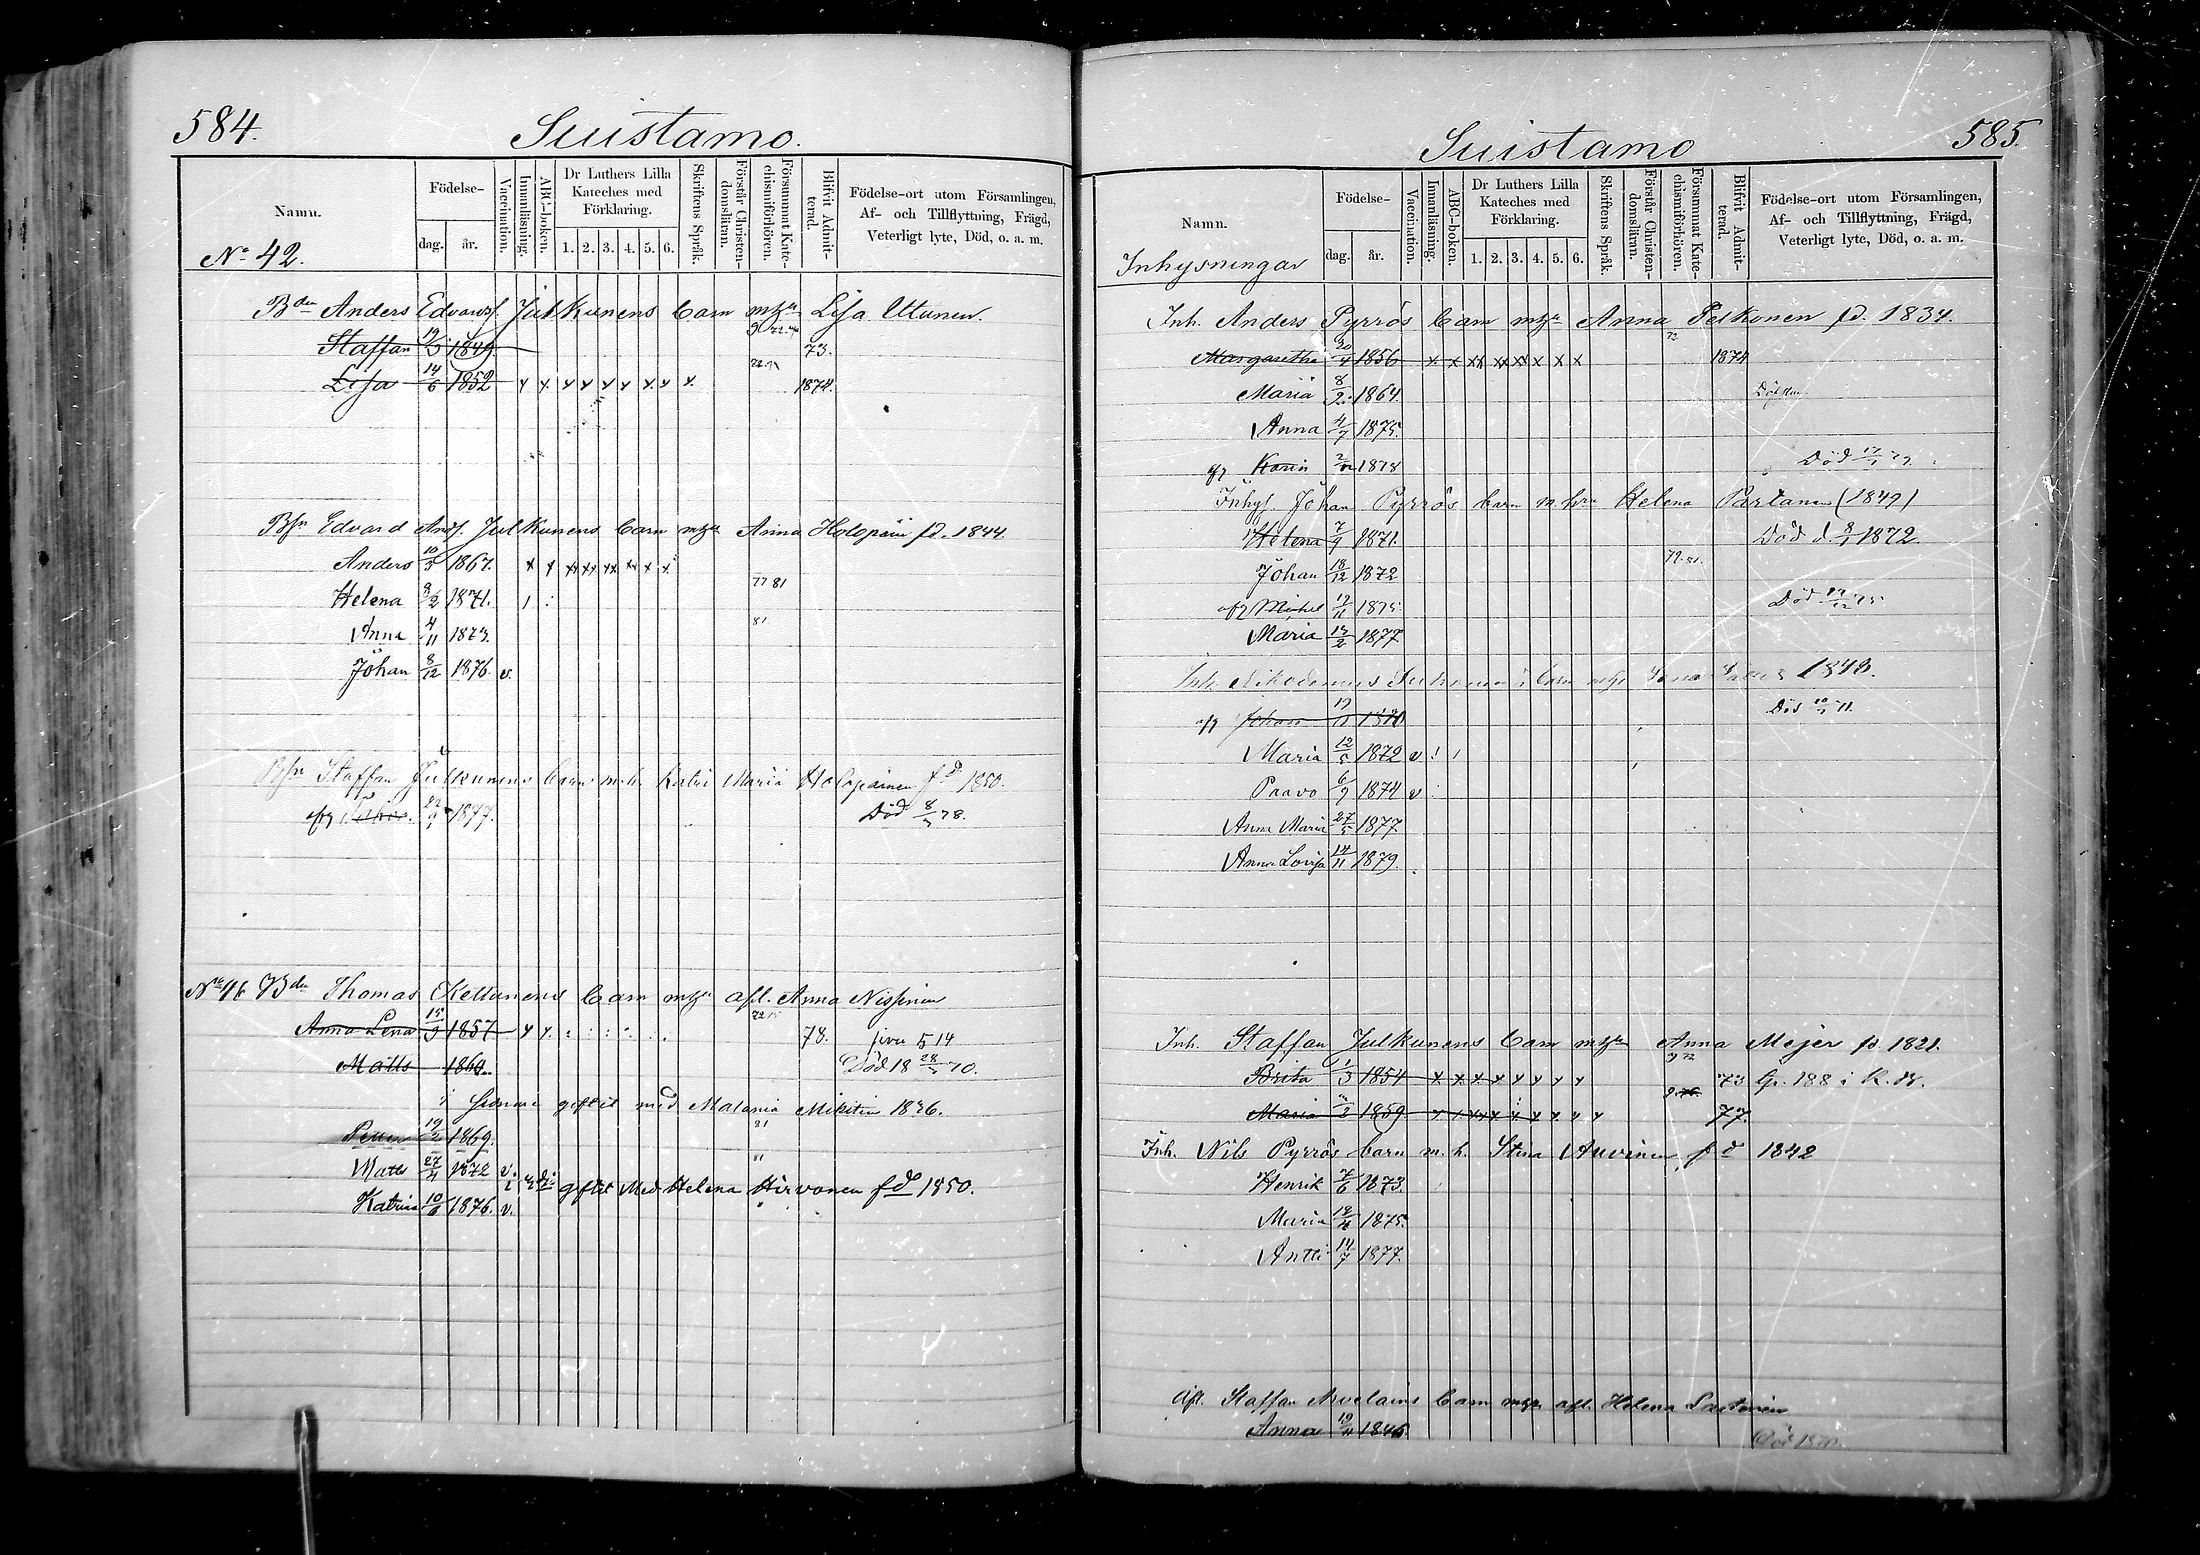 584.
Suistamo.
Namn.
Födelse-
dag.
år.
Vaccination.
Innanläsning.
ABC-boken.
Dr Luthers Lilla
Kateches med
Förklaring.
1. 2. 3. 4. 5. 6.
Skriftens Språk.
Förstår Christen-
domsläran.
Försummat Kate-
chismiförhören.
Blifvit Admit-
terad.
Födelse-ort utom Församlingen,
Af- och Tillflyttning, Frägd,
Veterligt lyte, Död, o. a. m.
No 42.
Bden Anders Edvardsf. Julkunens barn mhu Lisa
Staffan 19/3 1849 73.
Lisa 14/6 1852 x x x x x x x x x 1874.
Bsn Edvard Ands. Julkunens barn mhu Anna Holopain fd. 1844.
Anders 10/3 1867. x x xx xx xx xx x x
Helena 3/2 1871. 77 81
Anna 4/11 1873. 81
Johan 8/12 1876. v.
Bsn Staffan Julkunens barn m.h. Katri Maria Holopainen fd 1850.
1877. Död 8/3 78.
Bden Thomas Kettunens barn mhu afl. Anna Nissinen
Anna Lena 15/9 1857 x x 78. 514
Matts 1860 Död 18 28/3 70.
giftit med Malania Mikitin 1846.
Petter 19/2 1869. 81
Matts 27/4 1872 v. 81
giftit Med Helena Hirvonen fd 1850.
Katrina 10/6 1876. v.
585.
Suistamo
Namn.
Födelse-
dag.
år.
Vaccination.
Innanläsning.
ABC-boken.
Dr Luthers Lilla
Kateches med
Förklaring.
1. 2. 3. 4. 5. 6.
Skriftens Språk.
Förstår Christen-
domsläran.
Försummat Kate-
chismiförhören.
Blifvit Admit-
terad.
Födelse-ort utom Församlingen,
Af- och Tillflyttning, Frägd,
Veterligt lyte, Död, o. a. m.
Inhysningar
Inh. Anders Pyrrös barn mhu Anna Pelkonen fd. 1834.
Margaretha 20/4 1856 x x xx xx x x x 72 1874
Maria 8/2 1864.
Anna 4/7 1875.
Karin 1878 Död
Inhys. Johan Pyrrös barn m. hu Helena Partanen (1849)
Helena 7/9 1871. Död d. 8/1 1872.
Johan 18/12 1872 79. 81.
Michel 17/11 1875. Död
Maria 1877
Inh. Nikodemus barn 1848.
Johan Död
Maria 12/5 1872 v
Paavo 6/9 1874 v
Anna Maria 27/5 1877.
Anna Lovisa 14/11 1879.
Inh. Staffan Julkunens barn mhu Anna Mejer fd. 1821.
Brita 1/3 1854 x x x x x x x x 73 188 i K. B.
Maria 1859 77.
Inh. Nils Pyrrös barn m. h. Stina Auvinen fd 1842
Henrik 1873.
Maria 1875.
Antti 14/7 1877.
Afl. Staffan barn mhu afl. Helena
Anna 1846
Död